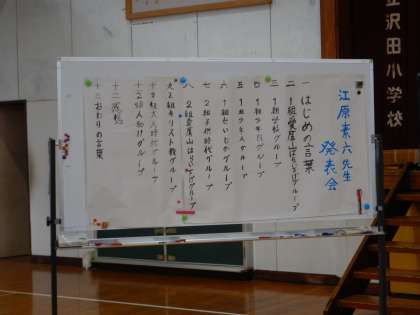 江原素六先生
発表会
一 はじめの言葉
二 1組愛鷹山はらいさげグループ
三 1組学校グループ
四 1組少年月グループ
五 1組少年人グループ
六 1組せいじかグループ
七 2組子供時代グループ
八 2組愛鷹山はらいさげグループ
九 2組キリスト教グループ
十 2組大人時代グループ
十一 2組人助けグループ
十二 感想
十三 おわりの言葉
立沢田小学校